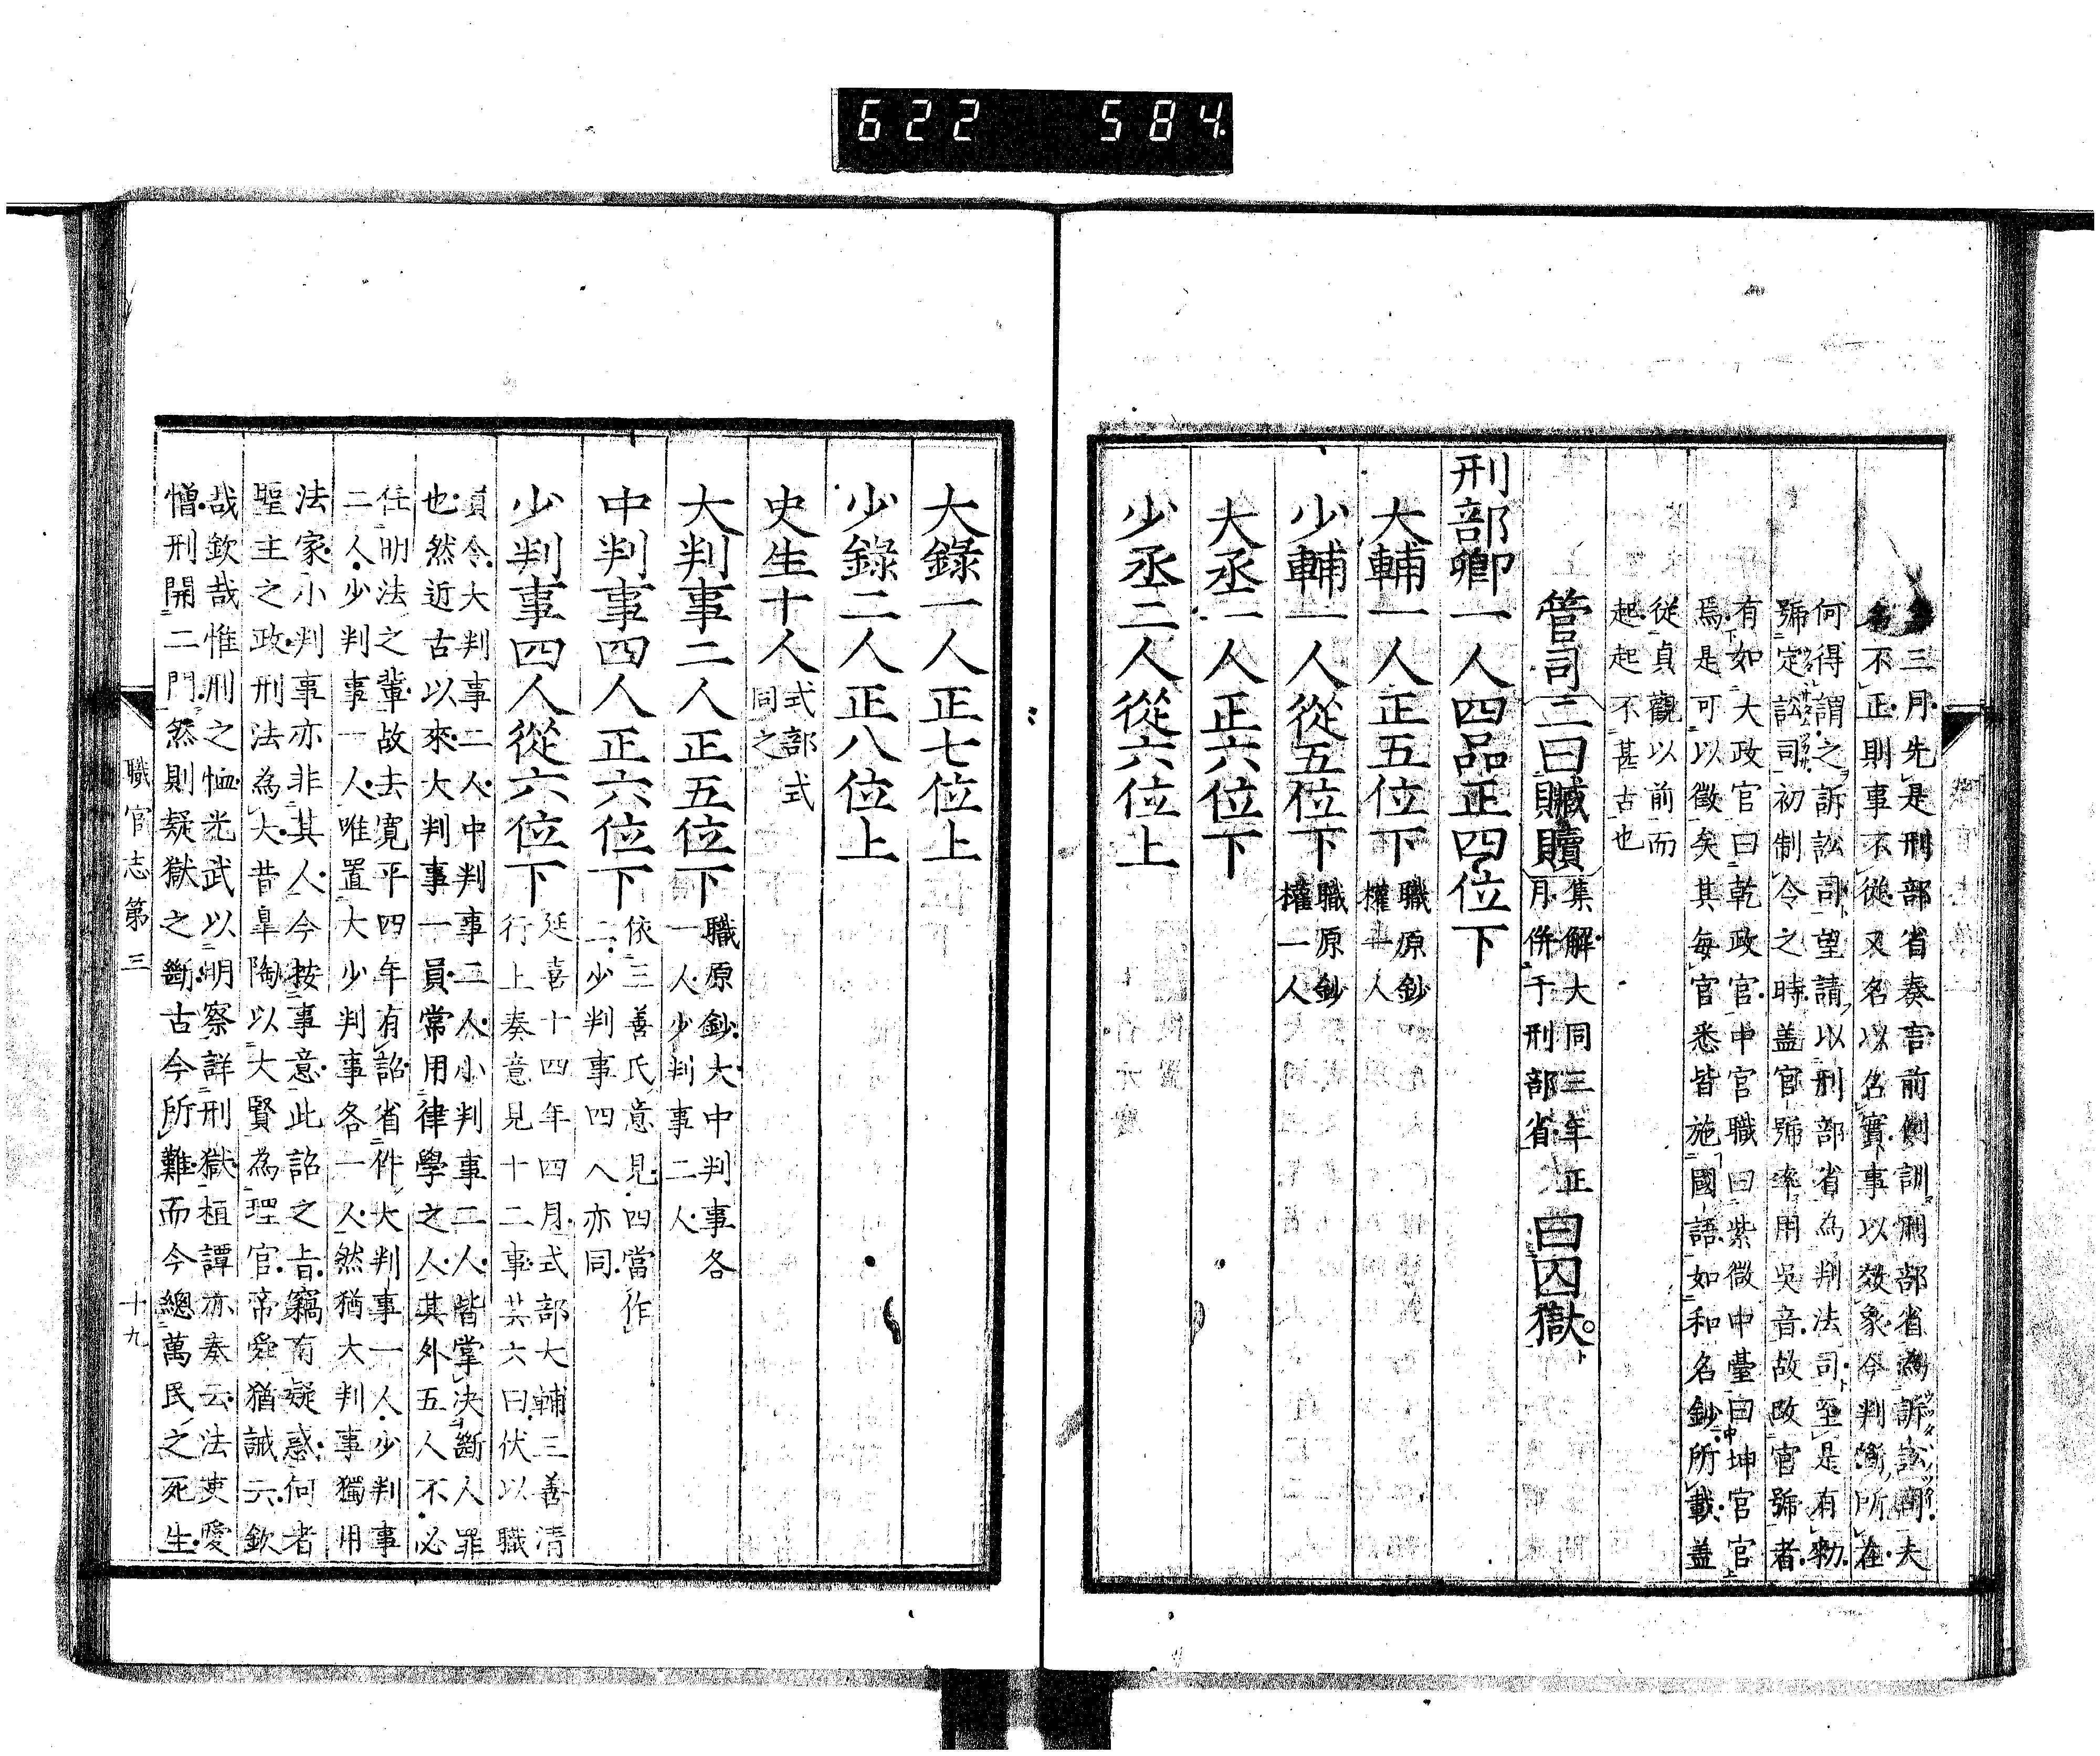 622 584
三月先是刑部省奏言前例訓刑部省為訴訟司夫
名不正則事不從又名以名實事以效象今判斷所在
何得謂之訴訟司望請以刑部省為判法司至是有勅
號定訟司初制令之時蓋官號率用吳音故改官號者
有如大政官曰乾政官中官職曰紫微中臺曰坤官官
焉是可以徵矣其每官悉皆施國語如和名鈔所載蓋
從貞觀以前而
起起不甚古也
管司二曰贓贖
集解大同三年正
月併于刑部省
曰囚獄
刑部卿一人四品正四位下
大輔一人正五位下
職原鈔
權一人
少輔一人從五位下
職原鈔
權一人
大丞二人正六位下
少丞二人從六位上
大錄一人正七位上
少錄二人正八位上
史生十人
式部式
同之
大判事二人正五位下
職原鈔大中判事各
一人少判事二人
中判事四人正六位下
依三善氏意見四當作
二少判事四人亦同
少判事四人從六位下
延喜十四年四月式部大輔三善清
行上奏意見十二事其六曰伏以職
員令大判事二人中判事二人小判事二人皆掌決斷人罪
也然近古以來大判事一員常用律學之人其外五人不必
任明法之輩故去寬平四年有詔省件大判事一人少判事
二人少判事一人唯置大少判事各一人然猶大判事獨用
法家小判事亦非其人今按事意此詔之旨竊有疑惑何者
聖主之政刑法為大昔皐陶以大賢為理官帝舜猶誡云欽
哉欽哉惟刑之恤光武以明察詳刑獄桓譚亦奏云法吏愛
憎刑開二門然則疑獄之斷古今所難而今總萬民之死生
職官志第三
十九